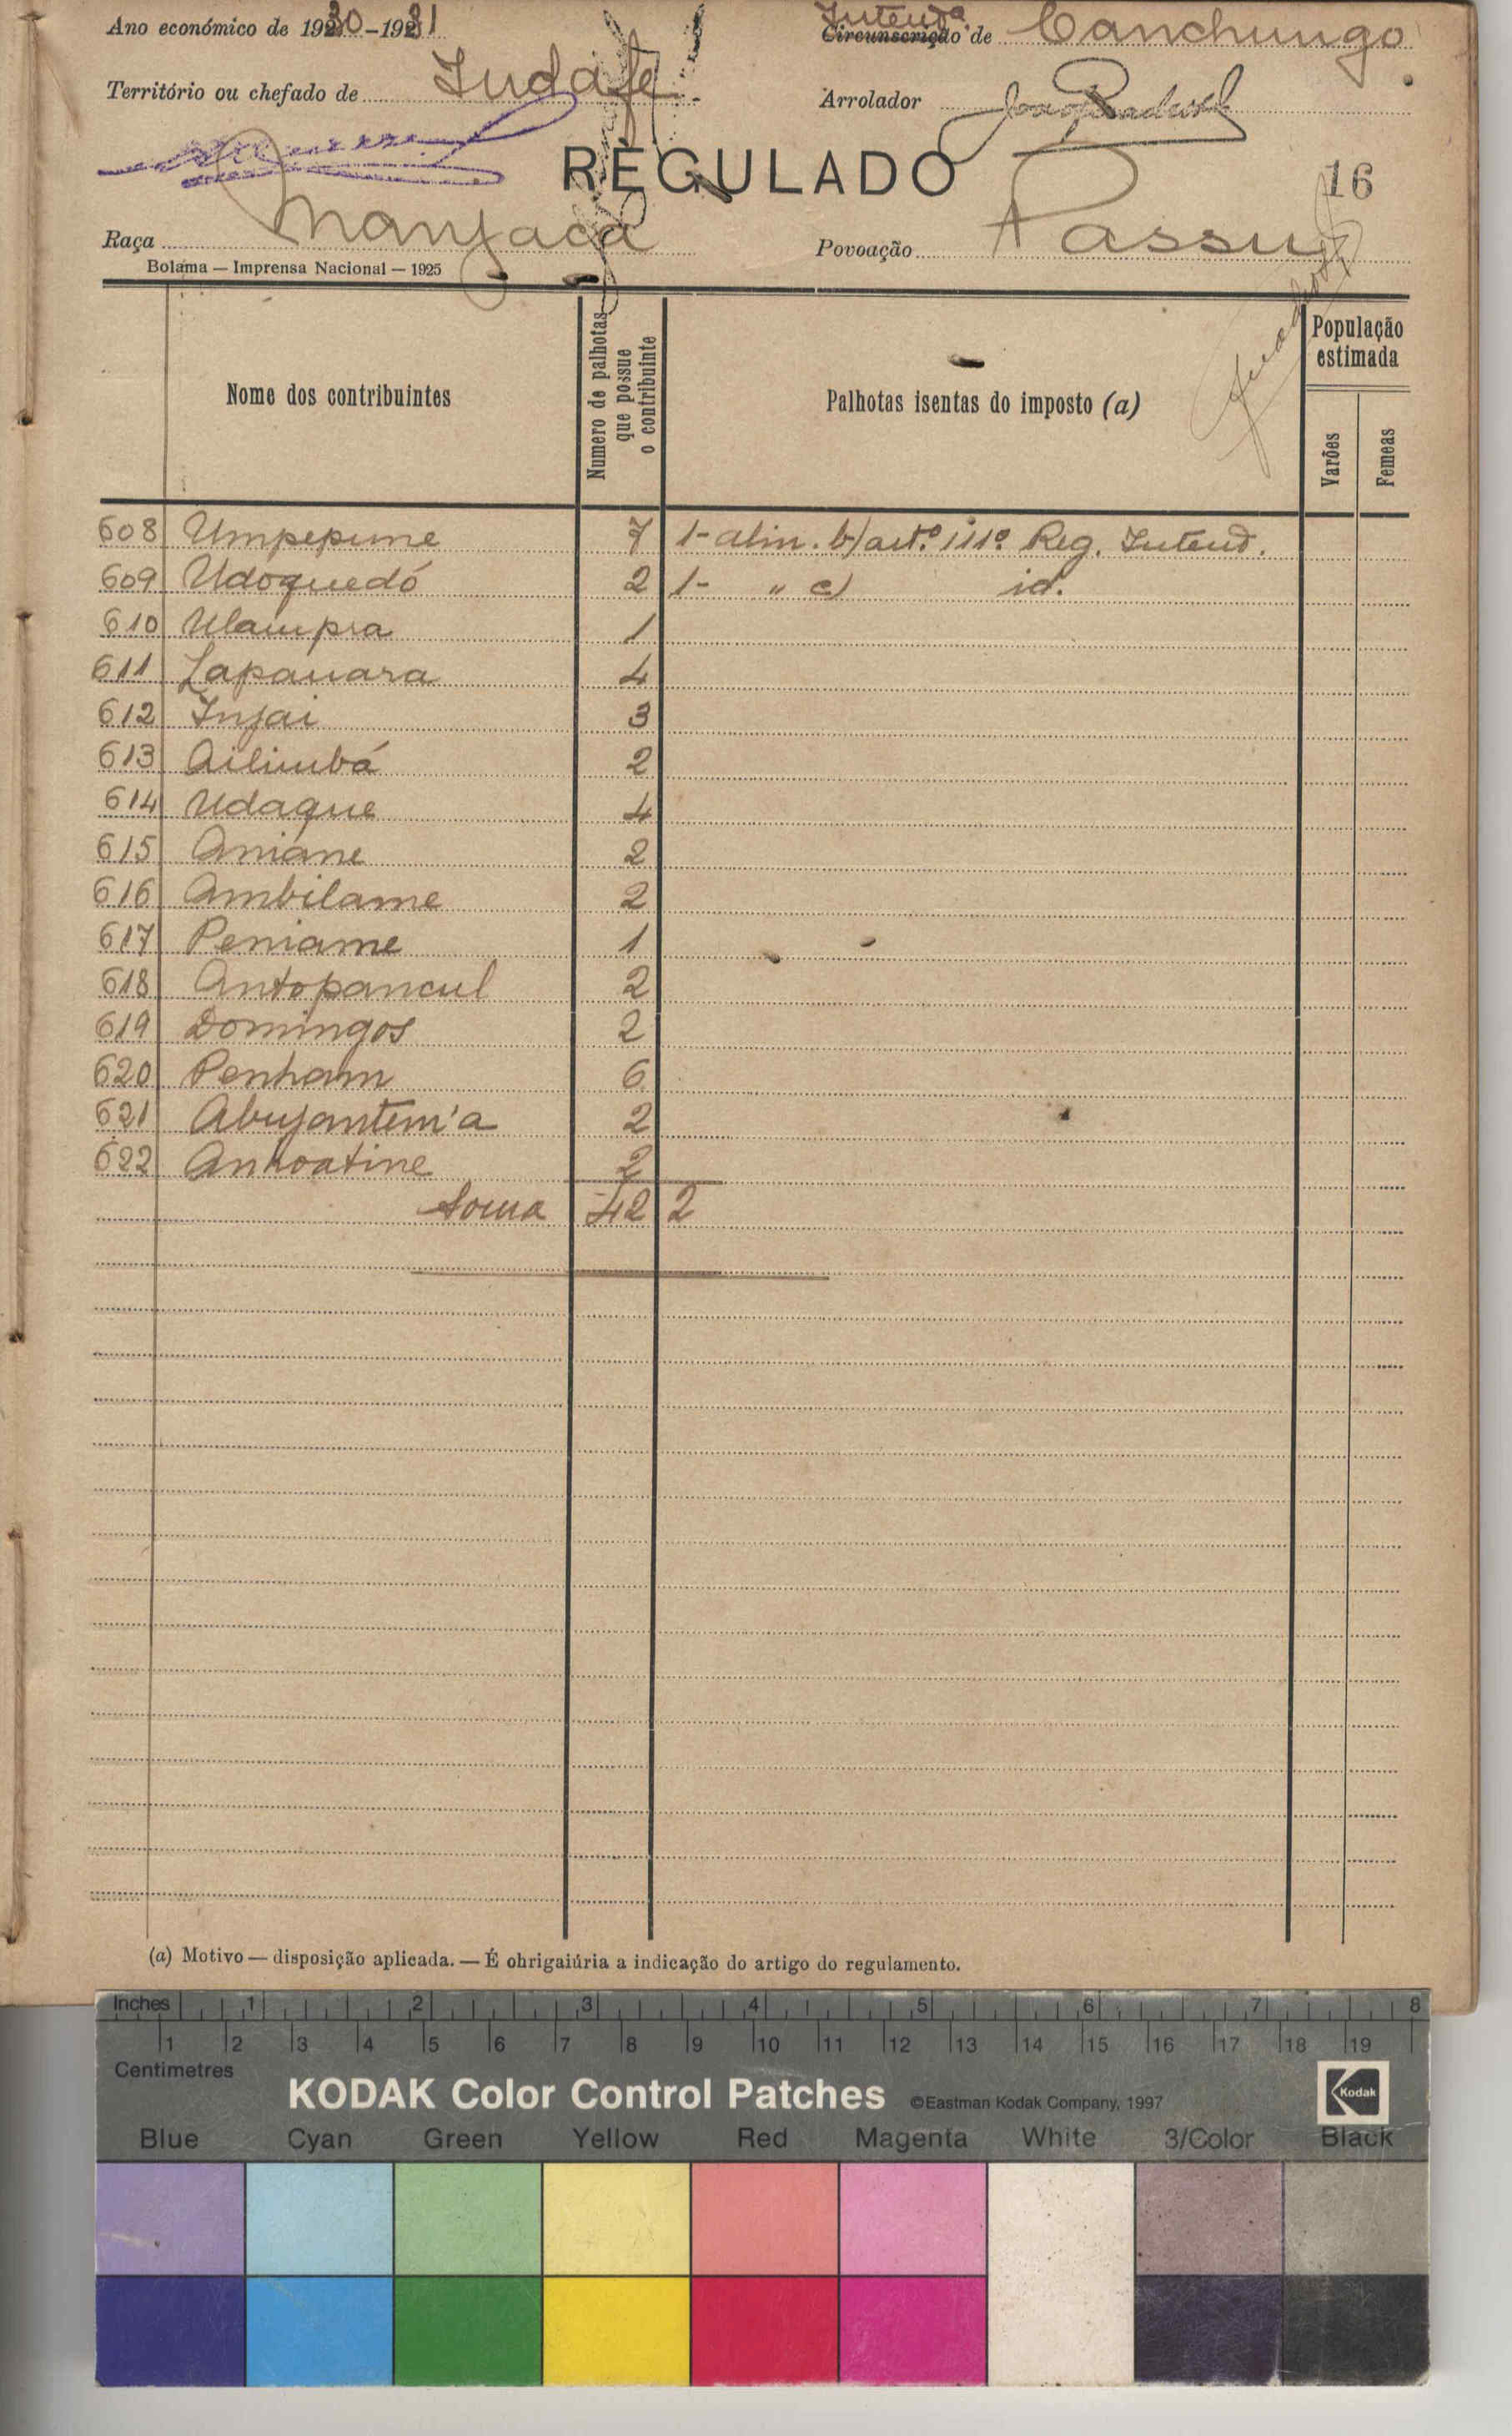 Ano económico de 1930-1931
Intend.ª de Canchungo
Território ou chefado de Indafe
Arrolador
REGULADO
16
Raça Manjaca
Povoação Passu
Bolama — Imprensa Nacional — 1925
Nome dos contribuintes
Numero de palhotas que possue o contribuinte
Palhotas isentas do imposto (a)
População estimada
Varões
Femeas
608 Umpepume 7 1- alin. b) art.º 111º Reg. Intend.
609 Udóquedó 2 1- " c) id.
610 Ulampra 1
611 Zapauara 4
612 Injai 3
613 Ailimbá 2
614 Udaque 4
615 Aniane 2
616 Ambilame 2
617 Peniame 1
618 Antopancul 2
619 Domingos 2
620 Penham 6
621 Abujantem'a 2
622 Anhoatine 2
Soma 42 2
(a) Motivo — disposição aplicada. — É obrigaiúria a indicação do artigo do regulamento.
Inches 1 2 3 4 5 6 7 8
1 2 3 4 5 6 7 8 9 10 11 12 13 14 15 16 17 18 19
Centimetres
KODAK Color Control Patches ©Eastman Kodak Company, 1997 Kodak
Blue Cyan Green Yellow Red Magenta White 3/Color Black